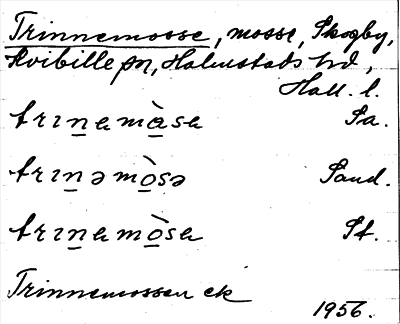 Trinnemosse, mosse, Skogby,
Kvibille sn, Halmstads hd,
Hall. l.
trınemàse Sa.
trınəmòsə Sand.
trınemòse St.
Trinnemossen ek
1956.